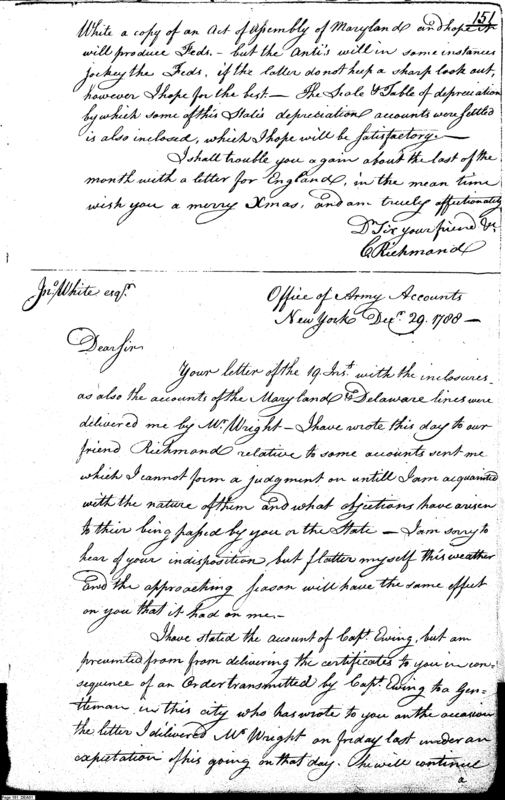 151
White a copy of an Act of Assembly of Maryland and hope it
will produce Feds. – but the Anti's will in some instances
jockey the Feds, if the latter do not keep a sharp look out,
however I hope for the best – The Scale & Table of depreciation
by which some of this State's depreciation accounts were settled
is also inclosed, which I hope will be satisfactory –
I shall trouble you again about the last of the
month with a letter for England, in the mean time
wish you a merry Xmas, and am truely affectionately
Dr Sir your friend &c
C Richmond
Jno. White esqr.
Office of Army Accounts
New York Decr. 29. 1788 –
Dear Sir
Your letter of the 19 Inst. with the inclosures
as also the accounts of the Maryland & Delaware lines were
delivered me by Mr. Wright – I have wrote this day to our
friend Richmond relative to some accounts sent me
which I cannot form a judgment on untill I am acquainted
with the nature of them and what objections have arisen
to their being passed by you or the State – I am sorry to
hear of your indisposition but flatter myself this weather
and the approaching season will have the same effect
on you that it had on me. –
I have stated the account of Capt. Ewing, but am
prevented from from delivering the certificates to you in con=
sequence of an Order transmitted by Capt. Ewing to a Gen=
tleman in this city who has wrote to you on the occasion
the letter I delivered Mr Wright on friday last under an
expectation of his going on that day. he will continue
a